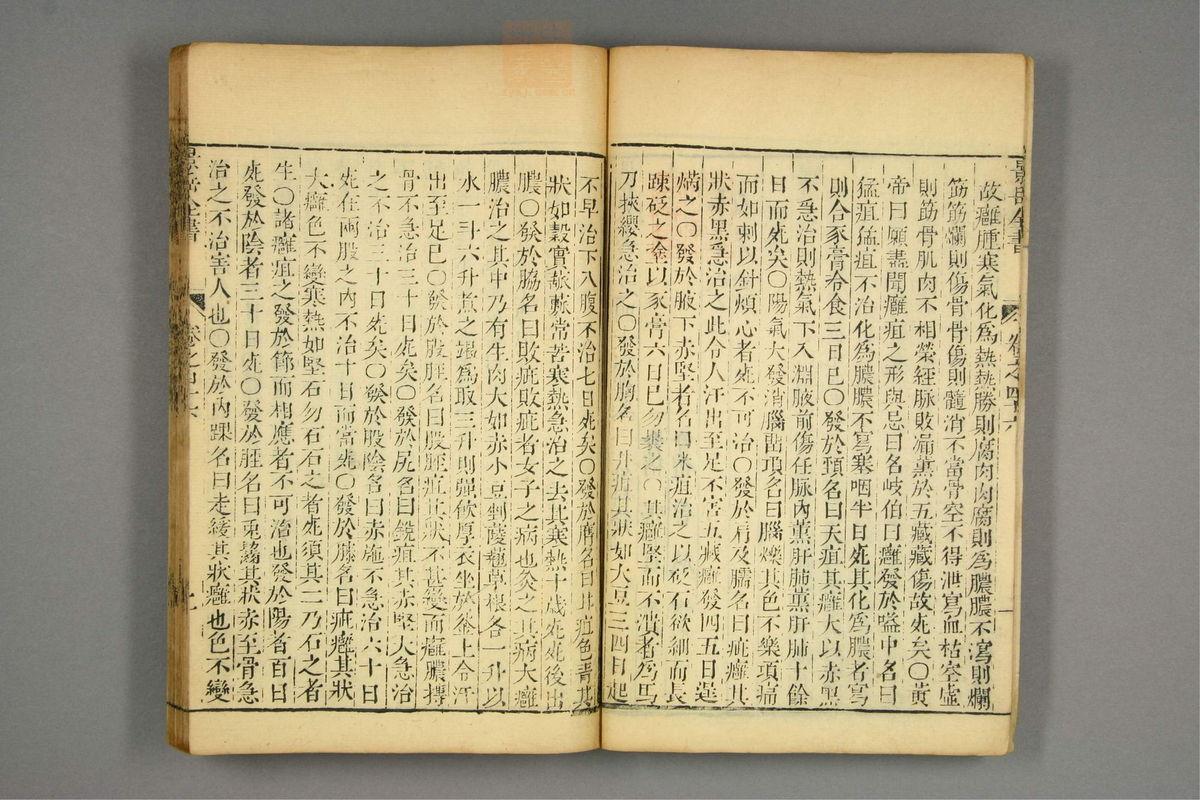 故癰腫寒氣化為熱熱勝則腐肉肉腐則為膿膿不瀉則爛
筋筋爛則傷骨骨傷則髓消不當骨空不得泄寫血枯空虛
則筋骨肌肉不相榮經脉敗漏薰於五藏藏傷故死矣〇黃
帝曰願盡聞癰疽之形與忌曰名岐伯曰癰發於嗌中名曰
猛疽猛疽不治化為膿膿不寫塞咽半日死其化為膿者寫
則合豕膏冷食三日已〇發於頸名曰夭疽其癰大以赤黑
不急治則熱氣下入淵腋前傷任脉內薰肝肺薰肝肺十餘
日而死矣〇陽氣大發消腦畱項名曰腦爍其色不樂項痛
而如刺以針煩心者死不可治〇發於肩及臑名曰疵癰其
狀赤黑急治之此令人汗出至足不害五藏癰發四五日逞
焫之〇發於腋下赤堅者名曰米疽治之以砭石欲細而長
疎砭之塗以豕膏六日已勿裹之〇其癰堅而不潰者為馬
刀挾纓急治之〇發於胸名曰井疽其狀如大豆三四日起
不早治下入腹不治七日死矣〇發於膺名曰甘疽色青其
狀如穀實䔧𤬏常苦寒熱急治之去其寒熱十歲死死後出
膿〇發於脇名曰敗疵敗疵者女子之病也灸之其病大癰
膿治之其中乃有生肉大如赤小豆剉䔖翹草根各一升以
水一斗六升煮之竭為取三升則強飲厚衣坐於釜上令汗
出至足已〇發於股胫名曰股脛疽其狀不甚變而癰膿摶
骨不急治三十日死矣〇發於尻名曰銳疽其赤堅大急治
之不治三十日死矣〇發於股陰名曰赤施不急治六十日
死在兩股之內不治十日而當死〇發於膝名曰疵癰其狀
大癰色不變寒熱如堅石勿石石之者死須其二乃石之者
生〇諸癰疽之發於節而相應者不可治也發於陽者百日
死發於陰者三十日死〇發於脛名曰兎齧其狀赤至骨急
治之不治害人也〇發於內踝名曰走緩其狀癰也色不變